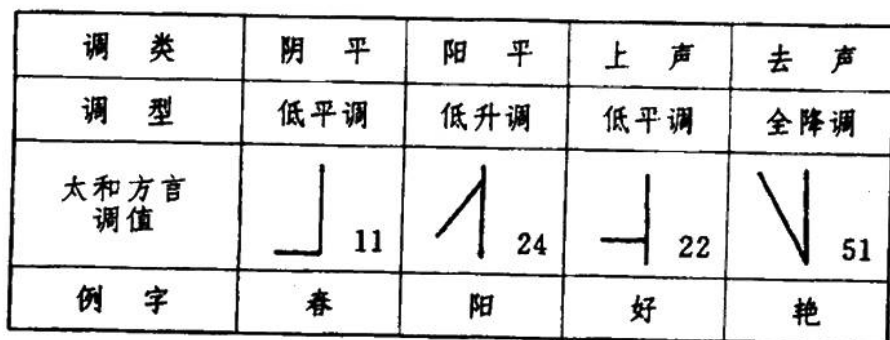 调类 阴平 阳平 上声 去声
调型 低平调 低升调 低平调 全降调
太和方言
调值 11 24 22 51
例字 春 阳 好 艳